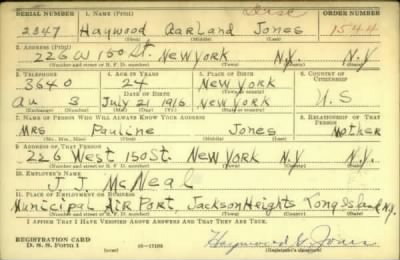 SERIAL NUMBER 1. NAME (Print) ORDER NUMBER
2347 Haywood Garland Jones 1544
(First) (Middle) (Last)
2. ADDRESS (Print)
226 W 150 St. New York N.Y. N.Y
(Number and street or R. F. D. number) (Town) (County) (State)
3. TELEPHONE 4. AGE IN YEARS 5. PLACE OF BIRTH 6. COUNTRY OF CITIZENSHIP
3640 24 New York
DATE OF BIRTH
Au 3 July 21 1916 N.Y. U.S
(Exchange) (Number) (Mo.) (Day) (Yr.) (State or country)
7. NAME OF PERSON WHO WILL ALWAYS KNOW YOUR ADDRESS 8. RELATIONSHIP OF THAT PERSON
Mrs Pauline Jones Mother
(Mr., Mrs., Miss) (First) (Middle) (Last)
9. ADDRESS OF THAT PERSON
226 West 150 St. New York N.Y. N.Y
(Number and street or R. F. D. number) (Town) (County) (State)
10. EMPLOYER'S NAME
J. J. McNeal
11. PLACE OF EMPLOYMENT OR BUSINESS
Municipal Air Port, Jackson Heights Long Island N.Y.
(Number and street or R. F. D. number) (Town) (County) (State)
I AFFIRM THAT I HAVE VERIFIED ABOVE ANSWERS AND THAT THEY ARE TRUE.
REGISTRATION CARD
D. S. S. FORM 1 16-17105 Haywood G. Jones
(Registrant's signature)